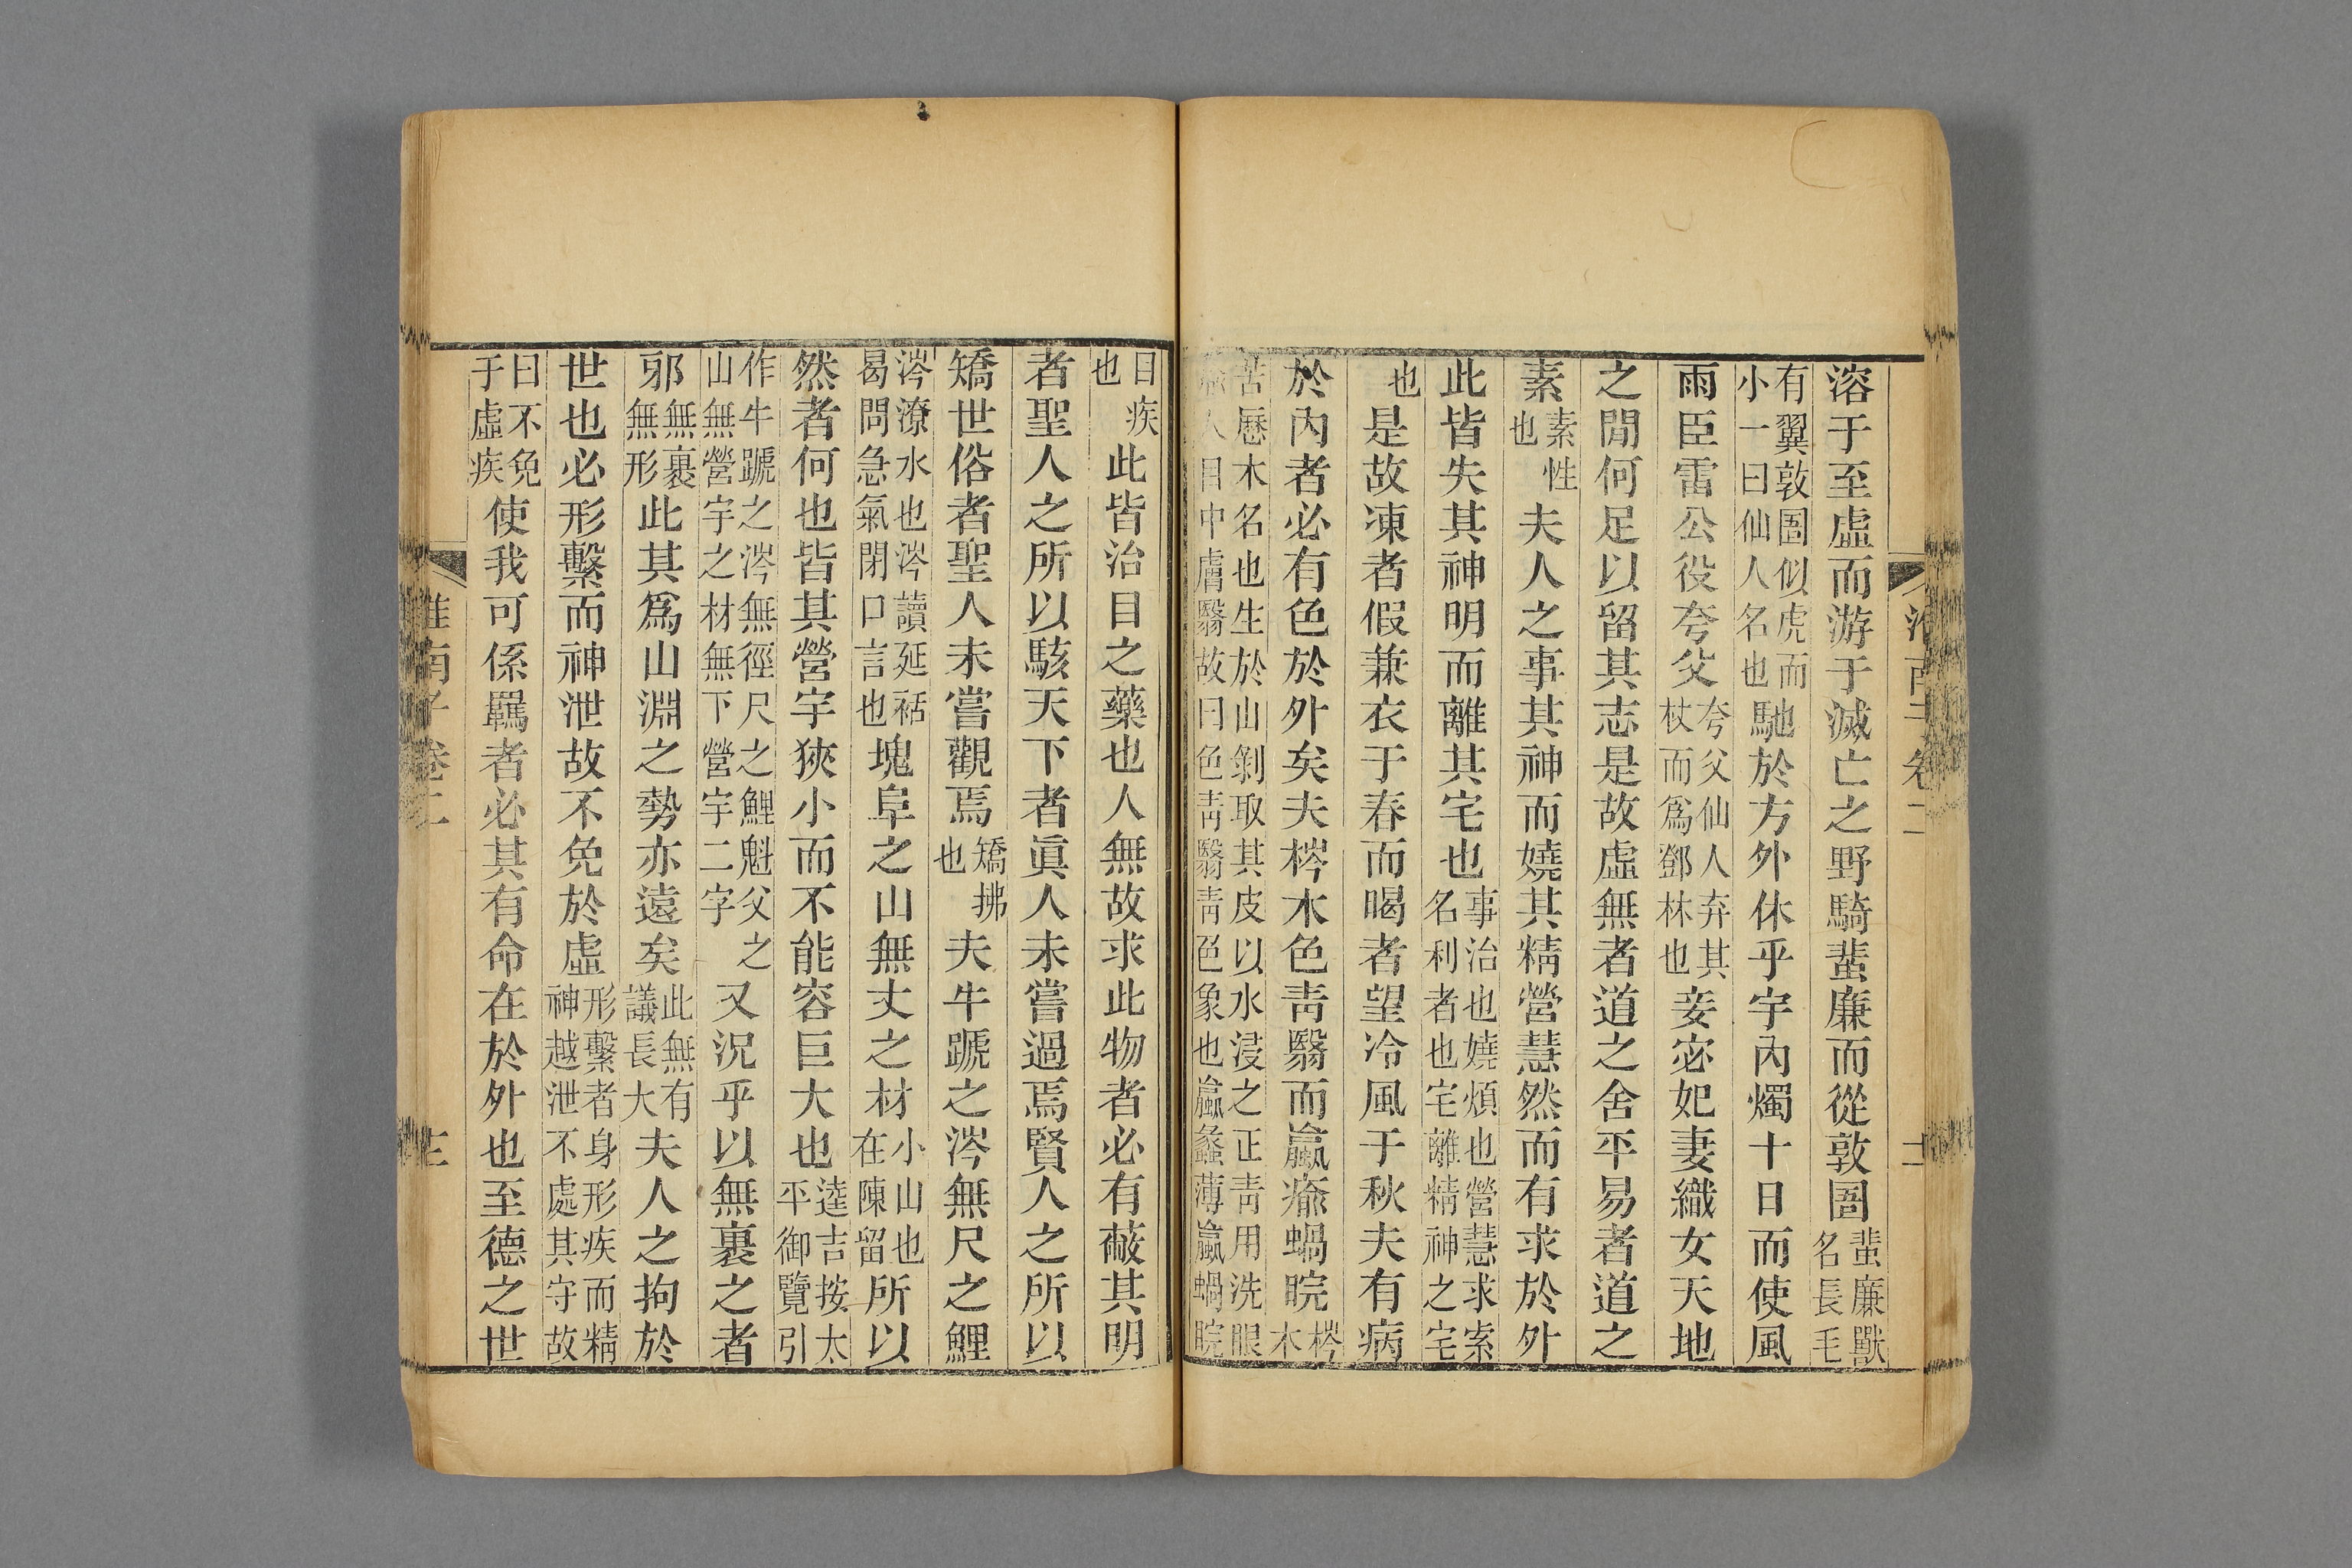 溶于至虛而游于滅亡之野騎蜚廉而從敦圄蜚廉獸名長毛
有翼敦圄似虎而小一曰仙人名也馳於方外休乎宇內燭十日而使風
雨臣雷公役夸父夸父仙人弃其杖而爲鄧林也妾宓妃妻織女天地
之閒何足以留其志是故虛無者道之舍平易者道之
素素性也夫人之事其神而嬈其精營慧然而有求於外
此皆失其神明而離其宅也事治也嬈煩也營慧求索名利者也宅離精神之宅
也是故凍者假兼衣于春而暍者望冷風于秋夫有病
於內者必有色於外矣夫梣木色靑翳而蠃瘉蝸睆梣木
苦歷木名也生於山剝取其皮以水浸之正靑用洗眼瘉人目中膚翳故曰色靑翳靑色象也蠃蠡薄蠃蝸睆
目疾也此皆治目之藥也人無故求此物者必有蔽其明
者聖人之所以駭天下者眞人未嘗過焉賢人之所以
矯世俗者聖人未嘗觀焉矯拂也夫牛蹏之涔無尺之鯉
涔潦水也涔讀延祜曷問急氣閉口言也塊阜之山無丈之材小山也在陳留所以
然者何也皆其營宇狹小而不能容巨大也逵吉按太平御覽引
作牛蹏之涔無徑尺之鯉魁父之山無營宇之材無下營宇二字又況乎以無裏之者
邪無裏無形此其爲山淵之勢亦遠矣此無有議長大夫人之拘於
世也必形繫而神泄故不免於虛形繫者身形疾而精神越泄不處其守故
曰不免于虛疾使我可係羈者必其有命在於外也至德之世
淮南子 卷二